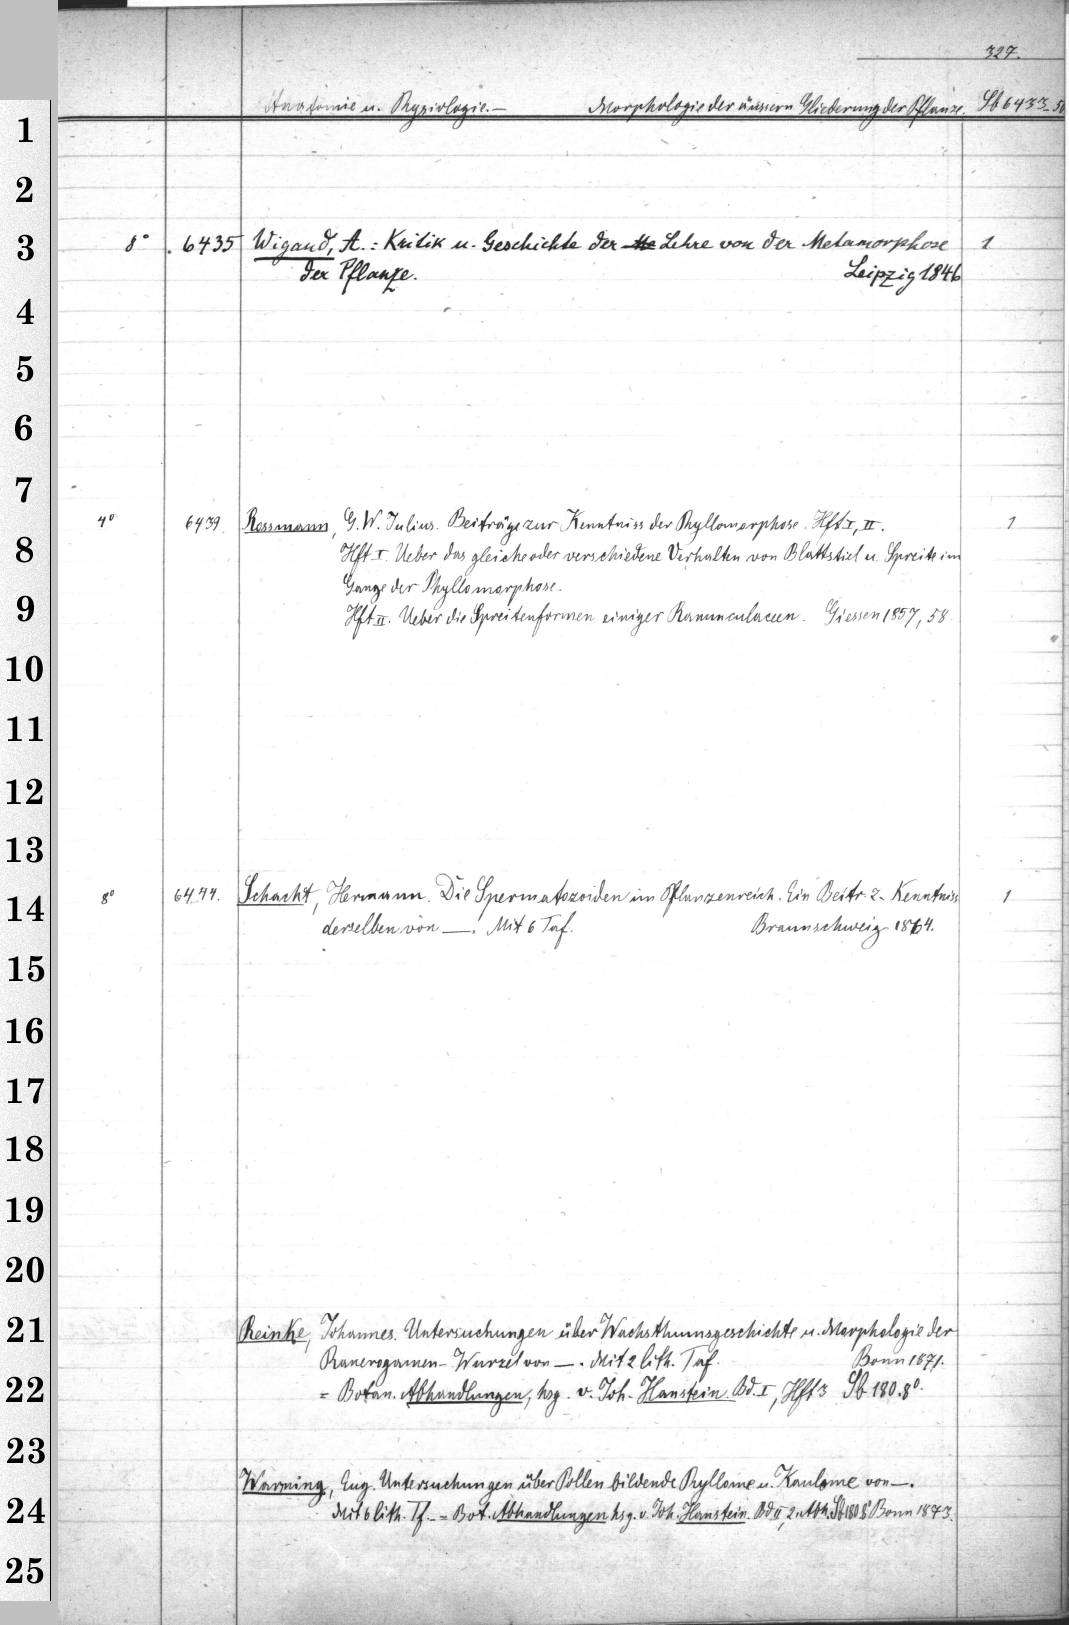 327.
Anatomie u. Physiologie. — Morphologie der äussern Gliederung der Pflanze. Sb 6433-50
1
2
3 8° 6435 Wigand, A.: Kritik u. Geschichte der Lehre von der Metamorphose 1
der Pflanze. Leipzig 1846
4
5
6
7
4° 6439. Rossmann, G. W. Julius. Beiträge zur Kenntniss der Phyllomorphose. Hft I, II. 1
8 Hft I. Ueber das gleiche oder verschiedene Verhalten von Blattstiel u. Spreite im
Gange der Phyllomorphose.
9 Hft II. Ueber die Spreitenformen einiger Ranunculaceen. Giessen 1857, 58
10
11
12
13
14 8° 6444. Schacht, Hermann. Die Spermatozoiden im Pflanzenreich. Ein Beitr. z. Kenntniss 1
derselben von —. Mit 6 Taf. Braunschweig 1864.
15
16
17
18
19
20
21 Reinke, Johannes. Untersuchungen über Wachsthumsgeschichte u. Morphologie der
Phanerogamen-Wurzel von —. Mit 2 lith. Taf. Bonn 1871.
22 = Botan. Abhandlungen, hsg. v. Joh. Hanstein Bd. I, Hft 3 Sb 180.8°.
23
Warming, Eug. Untersuchungen über Pollen bildende Phyllome u. Kaulome von —.
24 Mit 6 lith. Tf. — = Bot. Abhandlungen hsg. v. Joh. Hanstein. Bd II, 2. Abh. Sb 180 8° Bonn 1873.
25